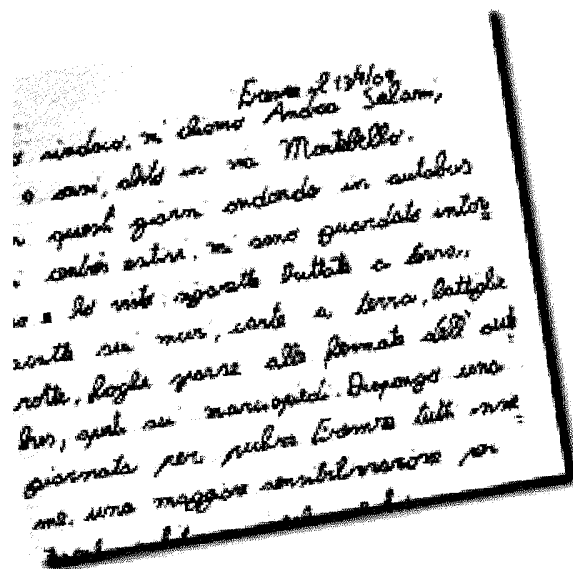 Firenze, il 13/4/09
sindaco, mi chiamo Andrea Salami,
o anni, abito in via Montebello.
questi giorni andando in autobus
centri estivi, mi sono guardato intor
no e ho visto sigarette buttate a terra,
scritte sui muri, carte a terra, bottiglie
rotte, foglie sparse alle fermate dell'auto
bus, sui marciapiedi. Propongo una
giornata per pulire Firenze tutti insie
me, una maggiore sensibilizzazione per